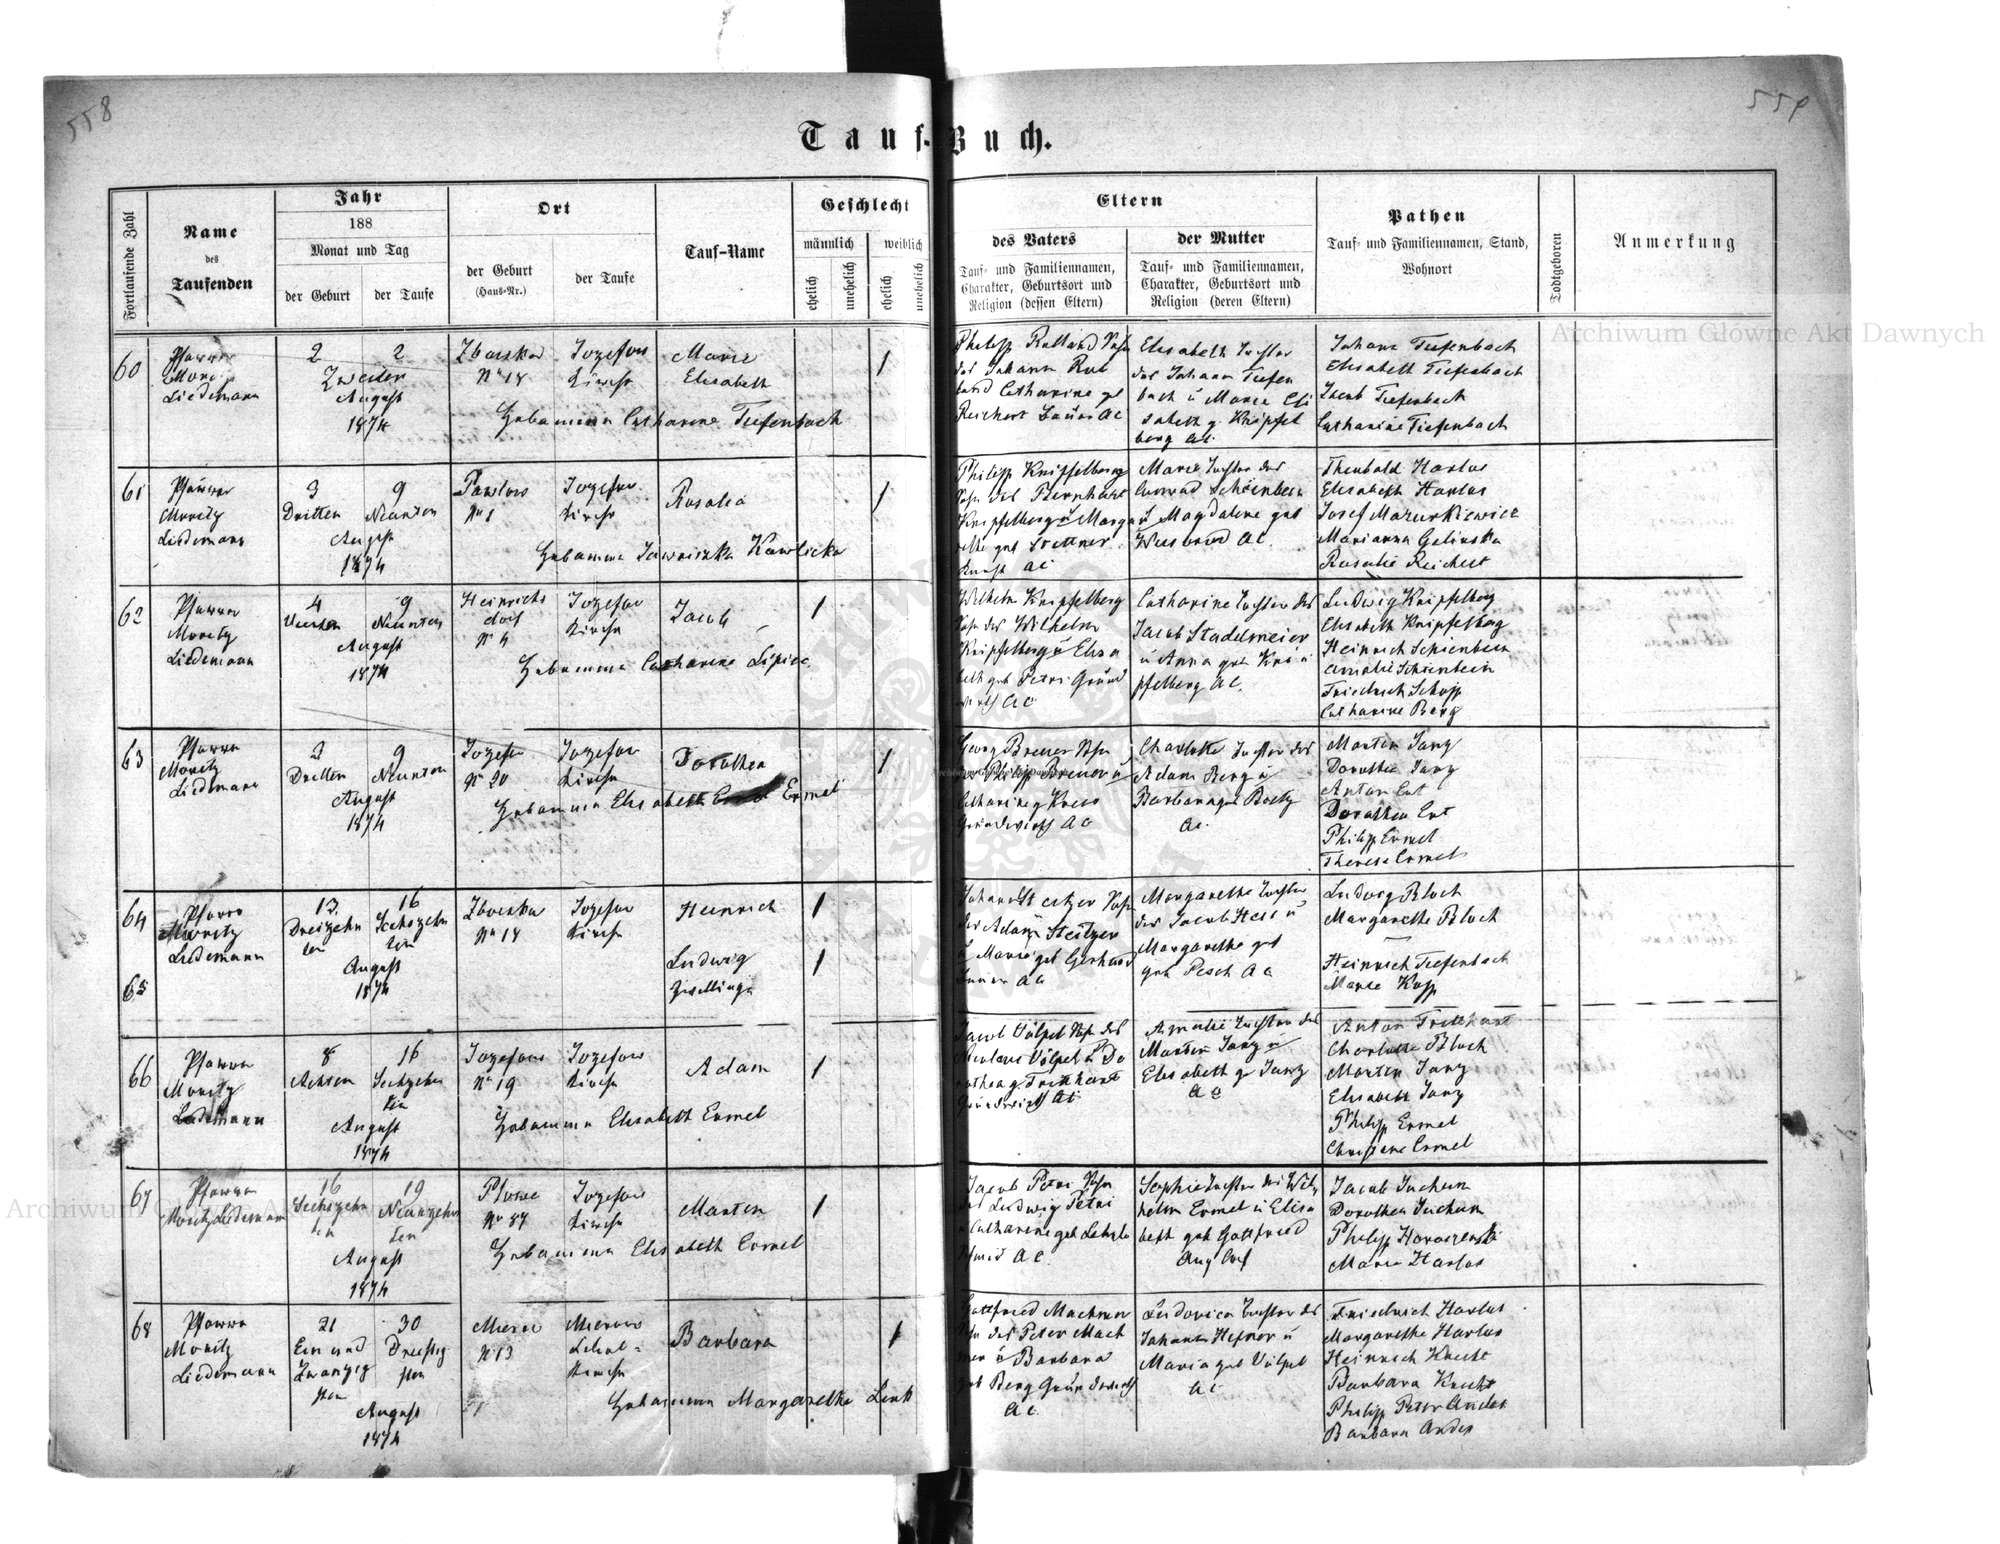 558
559
Tauf-Buch.
Fortlaufende Zahl
Name
des
Taufenden
Jahr
188
Monat und Tag
der Geburt
der Taufe
Ort
der Geburt
(Haus-Nr.)
der Taufe
Tauf-Name
Geschlecht
männlich
weiblich
ehelich
unehelich
ehelich
unehelich
Eltern
des Vaters
Tauf- und Familiennamen,
Charakter, Geburtsort und
Religion (dessen Eltern)
der Mutter
Tauf- und Familiennamen,
Charakter, Geburtsort und
Religion (deren Eltern)
Pathen
Tauf- und Familiennamen, Stand,
Wohnort
Todtgeboren
Anmerkung
60
Pfarrer
Liedemann
2
2
Zweiten
August
1874
Nr 18
Jozefow
Kirche
Marie
Elisabeth
1
Hebamme Catharine Tiefenbach
Philipp Rolland Sohn
des Johann Rol
land Catharine g
Reichert Bauer AC
Elisabeth Tochter
des Johann Tiefen
bach u Marie Eli
sabeth g. Knipfel
berg AC
Johann Tiefenbach
Elisabeth Tiefenbach
Jacob Tiefenbach
Catharine Tiefenbach
61
Pfarrer
Moritz
Liedemann
3
9
Dritten
Neunten
August
1874
Pawlow
No 1
Jozefow
Kirche
Rosalia
1
Hebamme
Philipp Knipfelberg
Sohn des Bernhart
Knipfelberg u Marga
rethe geb
AC
Marie Tochter des
Conrad Schienbein
u Magdalene geb
AC
Theobald Harlos
Elisabeth Harlos
Josef Mazurkiewicz
Marianna Galinska
Rosalie Reichert
62
Pfarrer
Moritz
Liedemann
4
9
Vierten
Neunten
August
1874
Heinrichs
dorf
No 4
Jozefow
Kirche
Jacob
1
Hebamme Catharine Lipiec
Wilhelm Knipfelberg
Sohn des Wilhelm
Knipfelberg u Elisa
beth geb Petri Grund
wirth AC
Catharine Tochter des
Jacob Stadelmeier
u Anna geb Kni
pfelberg AC.
Ludwig Knipfelberg
Elisabeth Knipfelberg
Heinrich Schienbein
Amalie Schienbein
Friedrich Schupp
Catharine Berg
63
Pfarrer
Moritz
Liedemann
3
9
Dritten
Neunten
August
1874
Jozefow
No 20
Jozefow
Kirche
Dorothea
1
Hebamme Elisabeth Ermel
Georg Breuer Sohn
des Philipp Breuer u
Catharine g Kress
Grundwirth AC
Charlotte Tochter des
Adam Berg u
Barbara geb
AC.
Martin Jany
Dorothea Jany
Anton Ent
Dorothea Ent
Philipp Ermel
Therese Ermel
64
65
Pfarrer
Moritz
Liedemann
13
16
Dreizehn
ten
Sechszehn
ten
August
1874
No 18
Jozefow
Kirche
Heinrich
1
Ludwig
Zwillinge
1
Johann Steitzer Sohn
des Adam Steitzer
u Marie geb Gerhard
Bauer AC
Margarethe Tochter
des Jacob Hess u
Margarethe geb
geb Pesch AC
Ludwig Bloch
Margarethe Bloch
Heinrich Tiefenbach
Marie Kopp
66
Pfarrer
Moritz
Liedemann
8
16
Achten
Sechzehn
ten
August
1874
Jozefow
No 19
Jozefow
Kirche
Adam
1
Hebamme Elisabeth Ermel
Jacob Völpel Sohn des
Nicolaus Völpel u Do
rothea g. Tritthart
Grundwirth AC
Amalie Tochter des
Martin Jany u
Elisabeth g Jany
AC
Anton Tritthart
Charlotte Bloch
Martin Jany
Elisabeth Jany
Philipp Ermel
Christine Ermel
67
Pfarrer
Moritz Liedemann
16
19
Sechszehn
ten
Neunzehn
ten
August
1874
No 87
Jozefow
Kirche
Martin
1
Hebamme Elisabeth Ermel
Jacob Petri Sohn
des Ludwig Petri
u Catharine geb
AC
Sophie Tochter des Wil
helm Ermel u Elisa
beth geb Gottfried
Jacob Juchum
Dorothea Juchum
Philipp
Marie Harlos
68
Pfarrer
Moritz
Liedemann
21
30
Ein und
Zwanzig
sten
Dreißig
sten
August
1874
Mierow
No 13
Mierow
Schul-
Kirche
Barbara
1
Hebamme Margarethe Lenk
Gottfried Machmer
Sohn des Peter Mach
mer u Barbara
geb Berg Grundwirth
AC.
Ludovica Tochter des
Johann Hefner u
Maria geb Völpel
AC
Friedrich Harlos
Margarethe Harlos
Heinrich Knecht
Barbara Knecht
Philipp Peter Andes
Barbara Andes
Archiwum Główne Akt Dawnych